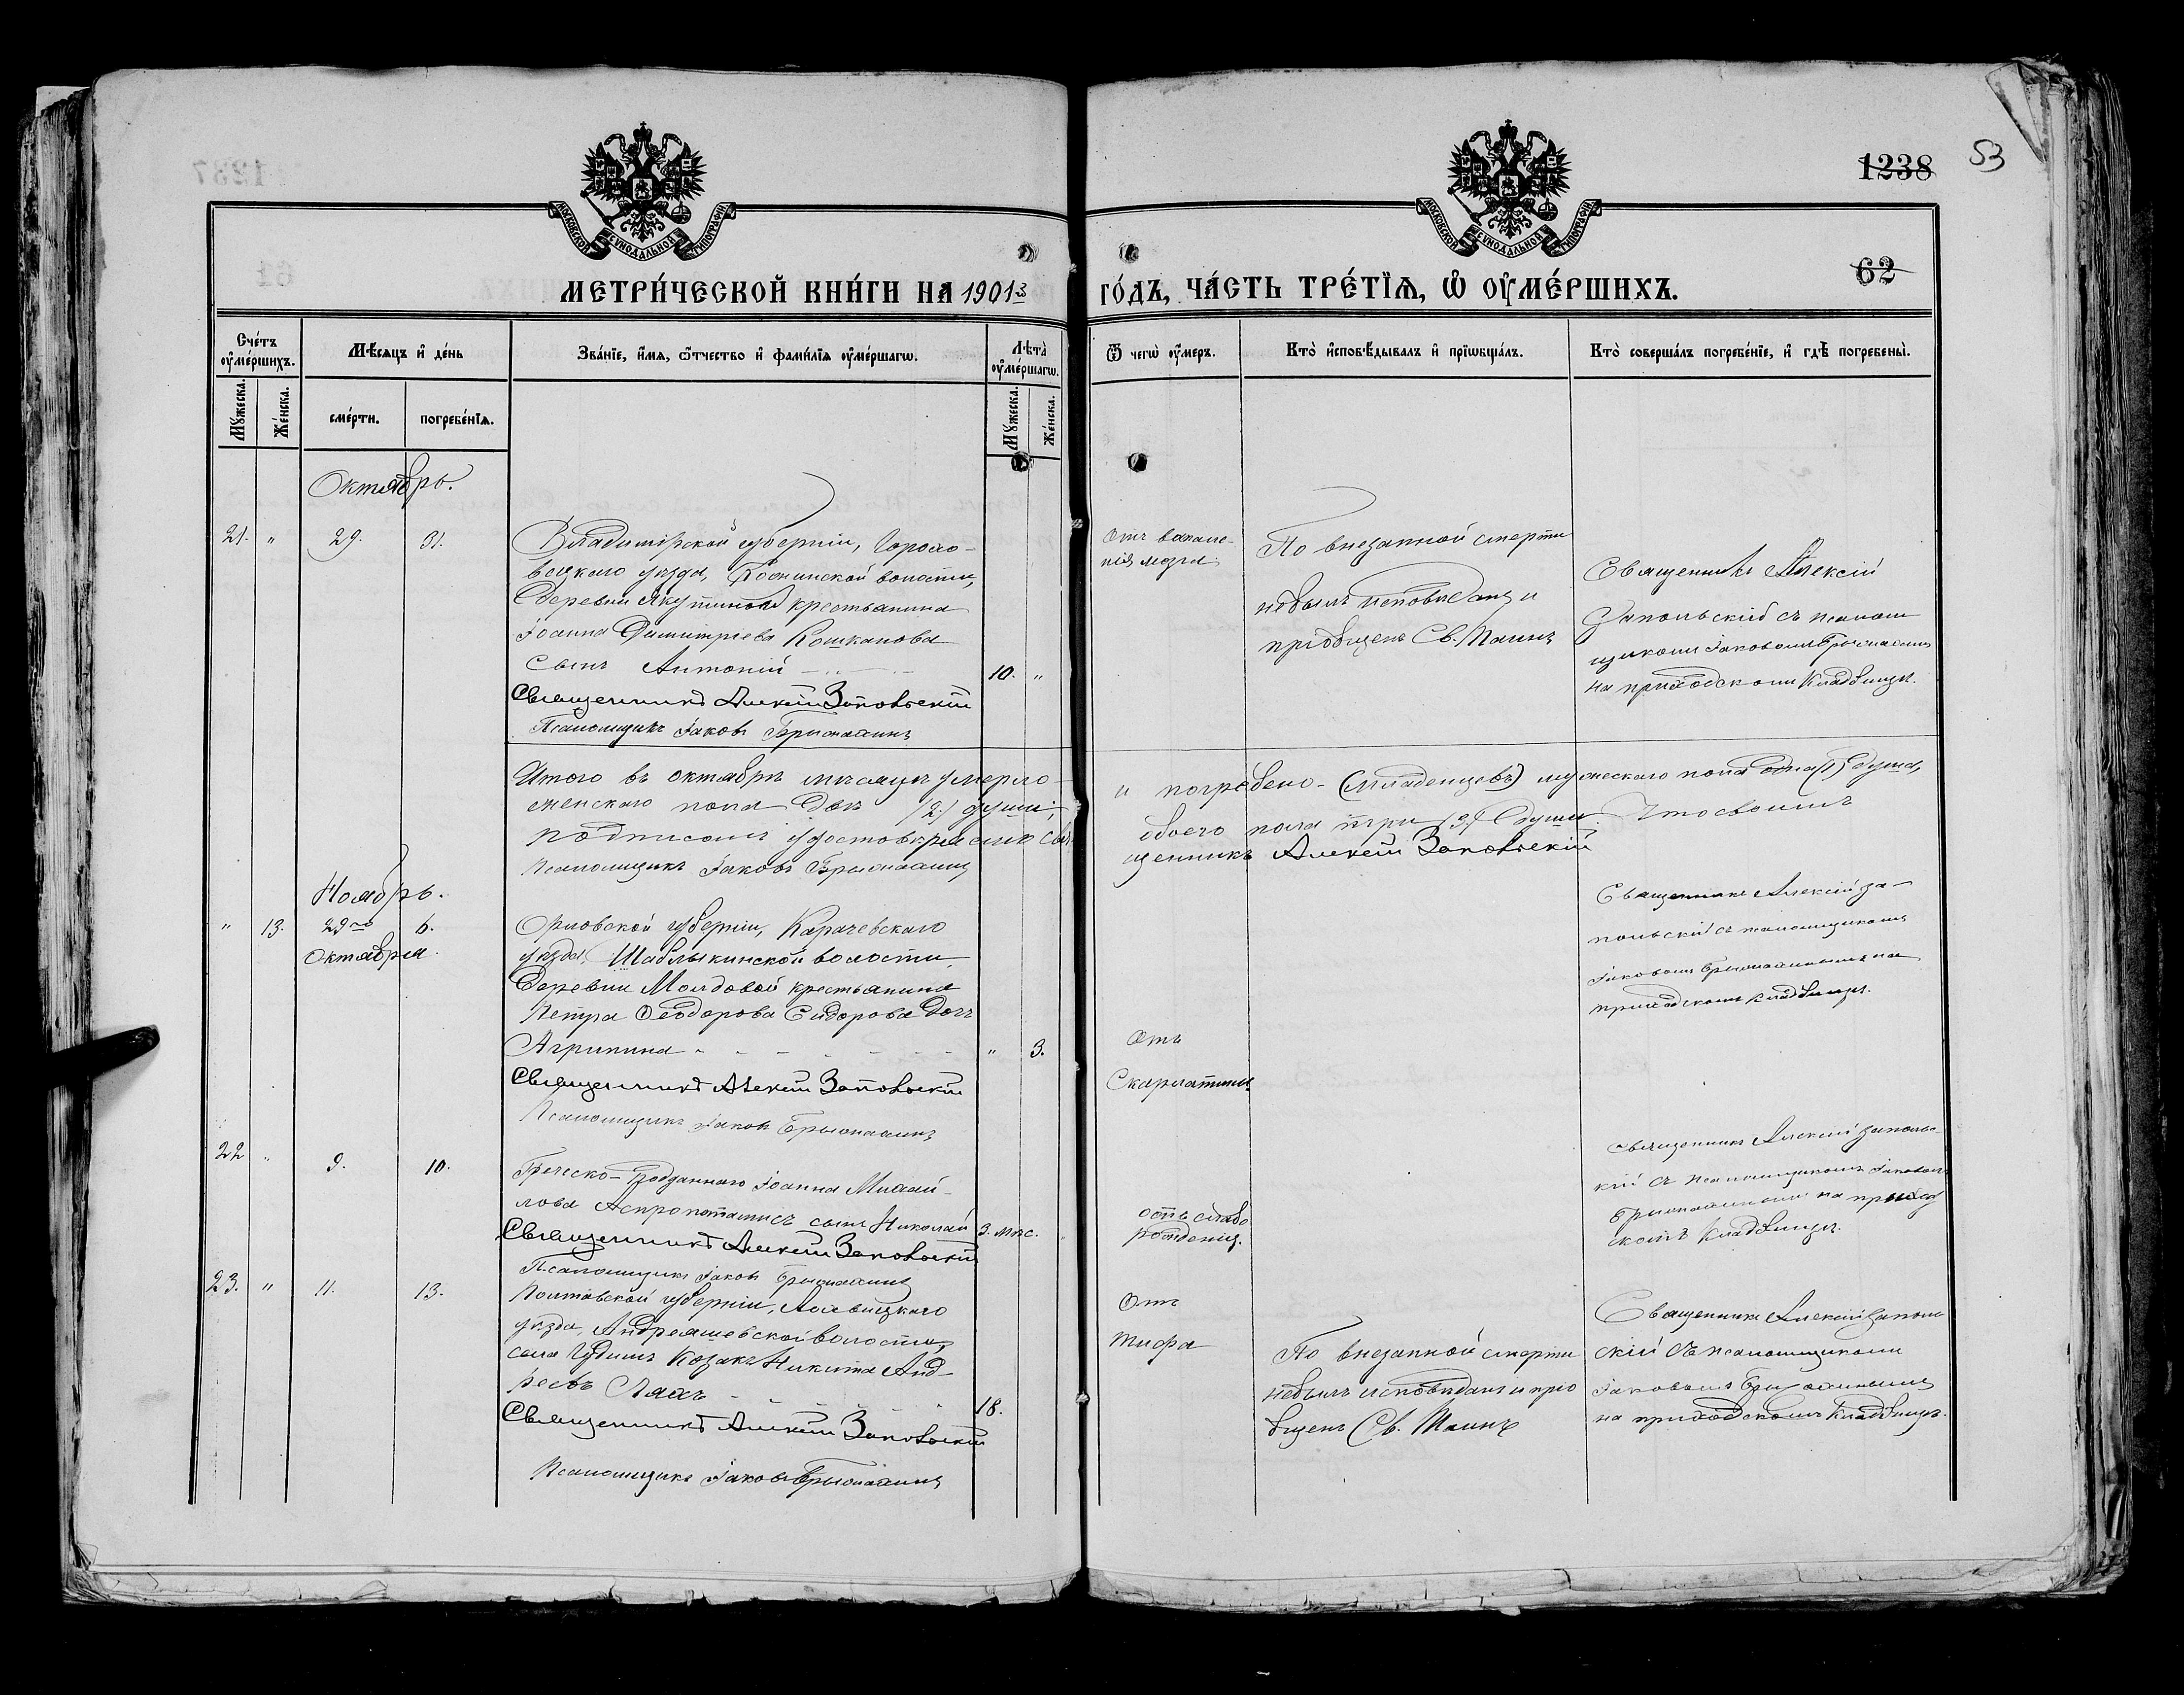 1238
53
МОСКОВСКОЙ СѴНОДАЛЬНОЙ ТИПОГРАФІИ
МОСКОВСКОЙ СѴНОДАЛЬНОЙ ТИПОГРАФІИ
62
МЕТРИ́ЧЕСКОЙ КНИ́ГИ НА 1901 3 ГО́ДЪ, ЧА́СТЬ ТРЕ́ТЇѦ, Ѡ҆ ОУ҆МЕ́РШИХЪ.
Сче́тъ оу҆ме́ршихъ.
Мꙋ́жеска.
Же́нска.
Мѣ́сяцъ и҆ де́нь
сме́рти.
погребе́нїѧ.
Зва́нїе, и҆́мя, ѻ҆́тчество и҆ фами́лїѧ оу҆ме́ршагѡ.
Лѣта̀ оу҆ме́ршагѡ.
Мꙋ́жеска.
Же́нска.
Ѿ чегѡ̀ оу҆́меръ.
Кто̀ и҆сповѣ́дывалъ и҆ прїѡбща́лъ.
Кто̀ соверша́лъ погребе́нїе, и҆ гдѣ̀ погребены̀.
Октябрь.
21. " 29. 31.
Владимірской губерніи, Горохо-
вецкаго уѣзда, волости,
деревни крестьянина
Іоанна Димитріева Кошканова
сынъ Антоній
10. "
Священникъ Алексій Запольскій
Псаломщикъ Іаковъ
Отъ воспале-
нія мозга.
По внезапной смерти
небылъ исповѣданъ и
пріобщенъ Св. Таинъ
Священникъ Алексій
Запольскій съ псалом
щикомъ Іаковомъ
на приходскомъ кладбищѣ.
Итого въ октябрѣ мѣсяцѣ умерло и погребено - (младенцевъ) мужескаго пола одна (1) душа,
женскаго пола двѣ (2) души, обоего пола три (3) души. Что своимъ
подписомъ удостовѣряемъ Свя-
щенникъ Алексій Запольскій
Псаломщикъ Іаковъ
Ноябрь.
" 13. 29го 6.
Октября.
Орловской губерніи, Карачевскаго
уѣзда, Шаблыкинской волости,
деревни Молдовой крестьянина
Петра Ѳеодорова Сидорова дочь
Агрипина
" 3.
Священникъ Алексій Запольскій
Псаломщикъ Іаковъ
Отъ
Скарлатины
Священникъ Алексій За-
польскій съ псаломщикомъ
Іаковомъ на
приходскомъ кладбищѣ.
22 " 9. 10.
Греческо-подданнаго Іоанна Михай-
лова сынъ Николай
3. мѣс.
Священникъ Алексій Запольскій
Псаломщикъ Іаковъ
отъ слабо
рожденія.
Священникъ Алексій Заполь-
кій съ псаломщикомъ Іаковомъ
на приход
скомъ кладбищѣ.
23. " 11. 13.
Полтавской губерніи, Лохвицкаго
уѣзда, Андреяшевской волости,
села козакъ Никита Анд-
реевъ Ляхъ
18.
Священникъ Алексій Запольскій
Псаломщикъ Іаковъ
Отъ
тифа
По внезапной смерти
небылъ исповѣданъ и прі
общенъ Св. Таинъ
Священникъ Алексій Заполь
скій съ псаломщикомъ
Іаковымъ
на приходскомъ кладбищѣ.